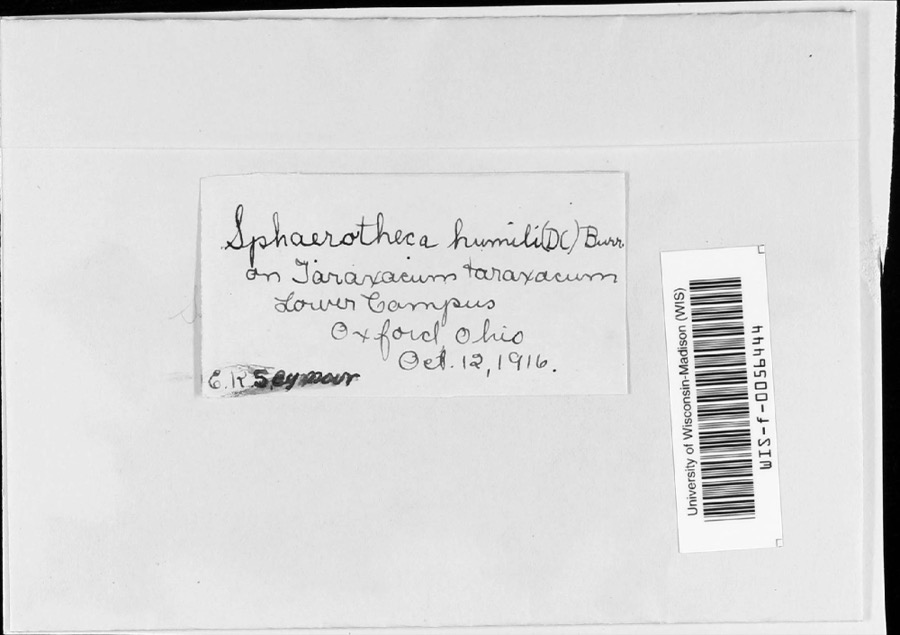 Sphaerotheca humili (DC) Burr.
on Taraxacum taraxacum
Lower Campus
Oxford Ohio
Oct. 12, 1916.
E. K. Seymour
University of Wisconsin-Madison (WIS)
WIS-f-0056444